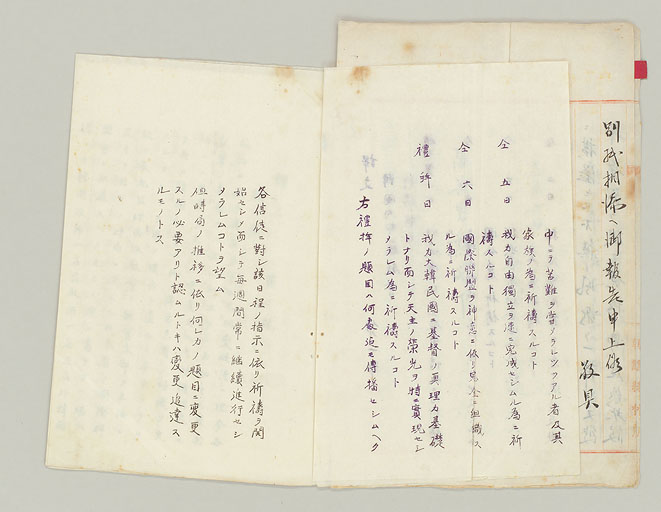 別紙相添へ御報告申上候
敬具
中ニテ苦難ヲ嘗メラレツヽアル者及其
家族ノ為ニ祈禱スルコト
仝 五日 我カ自由獨立ヲ速ニ完成セシムル為ニ祈
禱スルコト
仝 六日 國際聯盟カ神意ニ依リ完全ニ組織ス
ル為ニ祈禱スルコト
禮拜日 我カ大韓民國ニ基督ノ真理カ基礎
トナリ而シテ天主ノ榮光ヲ特ニ實現セシ
メラレム為ニ祈禱スルコト
右禮拜ノ題目ハ何處迄モ傳播セシムヘク
各信徒ニ對シ該日程ノ指示ニ依リ祈禱ヲ開
始セシメ而シテ毎週間常ニ繼續進行セシ
メラレムコトヲ望ム
但時局ノ推移ニ依リ何レカノ題目ニ變更
スルノ必要アリト認ムルトキハ變更追達ス
ルモノトス